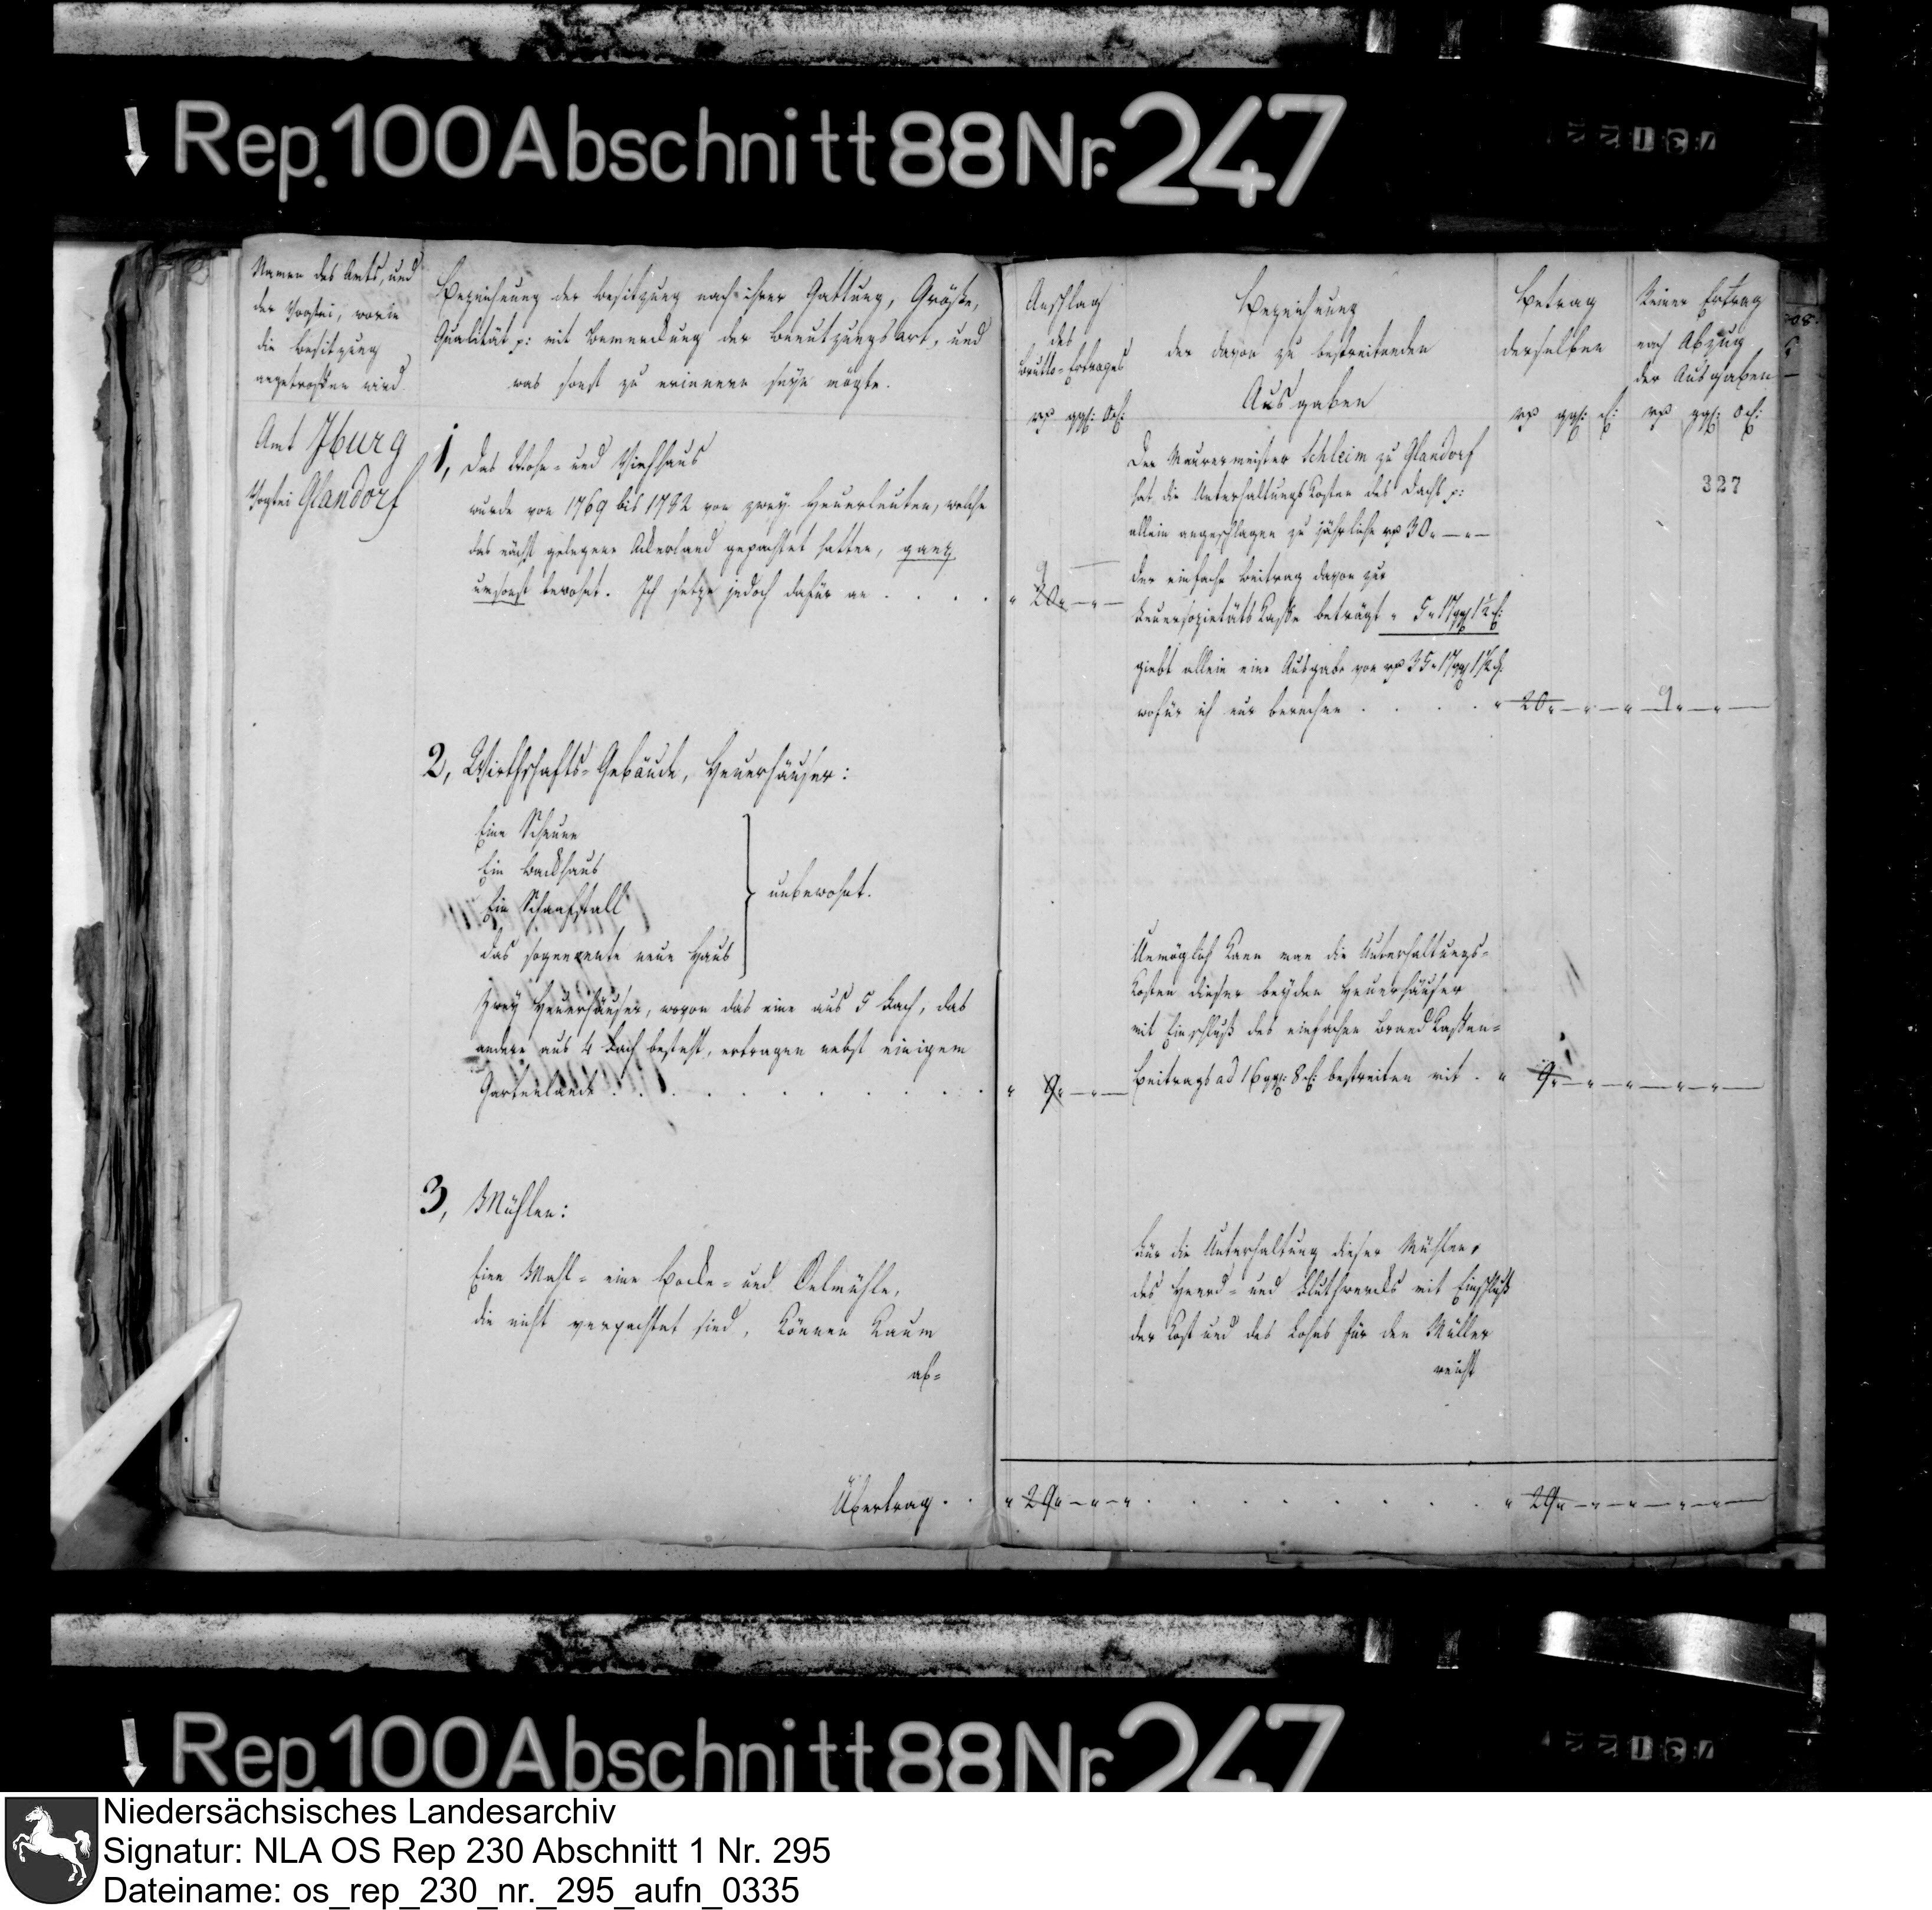 Rep. 100 Abschnitt 88 Nr. 247
Namen des Amts, und
der Vogtei, worin
die Besitzung
angetroffen wird.
Bezeichnung der Besitzung nach ihrer Gattung, Größe,
Qualität p: mit Bemerckung der Benutzungs Art, und
was sonst zu erinnern seyn mögte.
Anschlag
des
Brutto-Ertrages
Bezeichnung
der davon zu bestreitenden
Ausgaben
Betrag
derselben
Reiner Ertrag
nach Abzug
der Ausgaben
Amt Iburg
Vogtei Glandorf
1, Das Wohn- und Viehhaus
wurde von 1769 bis 1792 von zwey Heuerleuten, welche
das nächst gelegene Ackerland gepachtet hatten, ganz
umsonst bewohnt. Ich setze jedoch dafür an . . . .
20 „ — „ —
Der Maurermeister Schleim zu Glandorf
hat die Unterhaltungs Kosten des Dachs p:
allein angeschlagen zu jährliche rp 30 „ — „ —
der einfache Beitrag davon zur
Feuersozietäts Casse beträgt „ 5 „ 17 ggl 1½
giebt allein eine Ausgabe von rp 35 „ 17 ggl 1½
wofür ich nur berechne . . . .
„ 20 „ — „ — „ 9 „ — „ —
327
2, Wirthschafts-Gebäude, Heuerhäuser:
Eine Scheune
Ein Backhaus
Ein Schaafstall
das sogenannte neue Haus
unbewohnt.
Zwey Heuerhäuser, wovon das eine aus 5 Fach, das
andere aus 4 Fach besteht, ertragen nebst einigem
Gartenlande . . . . . . . . .
„ 9 „ — „ —
Unmöglich kann man die Unterhaltungs-
Kosten dieser beyden Heuerhäuser
mit Einschluß des einfachen Brand Cassen-
Beitrags ad 16 ggl: 8 bestreiten mit . „ 9 „ — „ — „ — „ — „ —
3, Mühlen:
Eine Mahl- eine Bocke- und Oelmühle,
die nicht verpachtet sind, können kaum
ab-
Für die Unterhaltung dieser Mühlen,
des Heerd- und Fluthwercks mit Einschluß
der Kost und des Lohns für den Müller
reicht
Übertrag . . „ 29 „ — „ — „ . . . . . . . . . „ 29 „ — „ — „ — „ — „ —
Rep. 100 Abschnitt 88 Nr. 247
Niedersächsisches Landesarchiv
Signatur: NLA OS Rep 230 Abschnitt 1 Nr. 295
Dateiname: os_rep_230_nr._295_aufn_0335